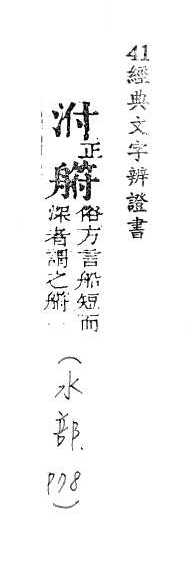 41經典文字辨證書
泭正
俗方言船短而
深者謂之
(水部.P78)